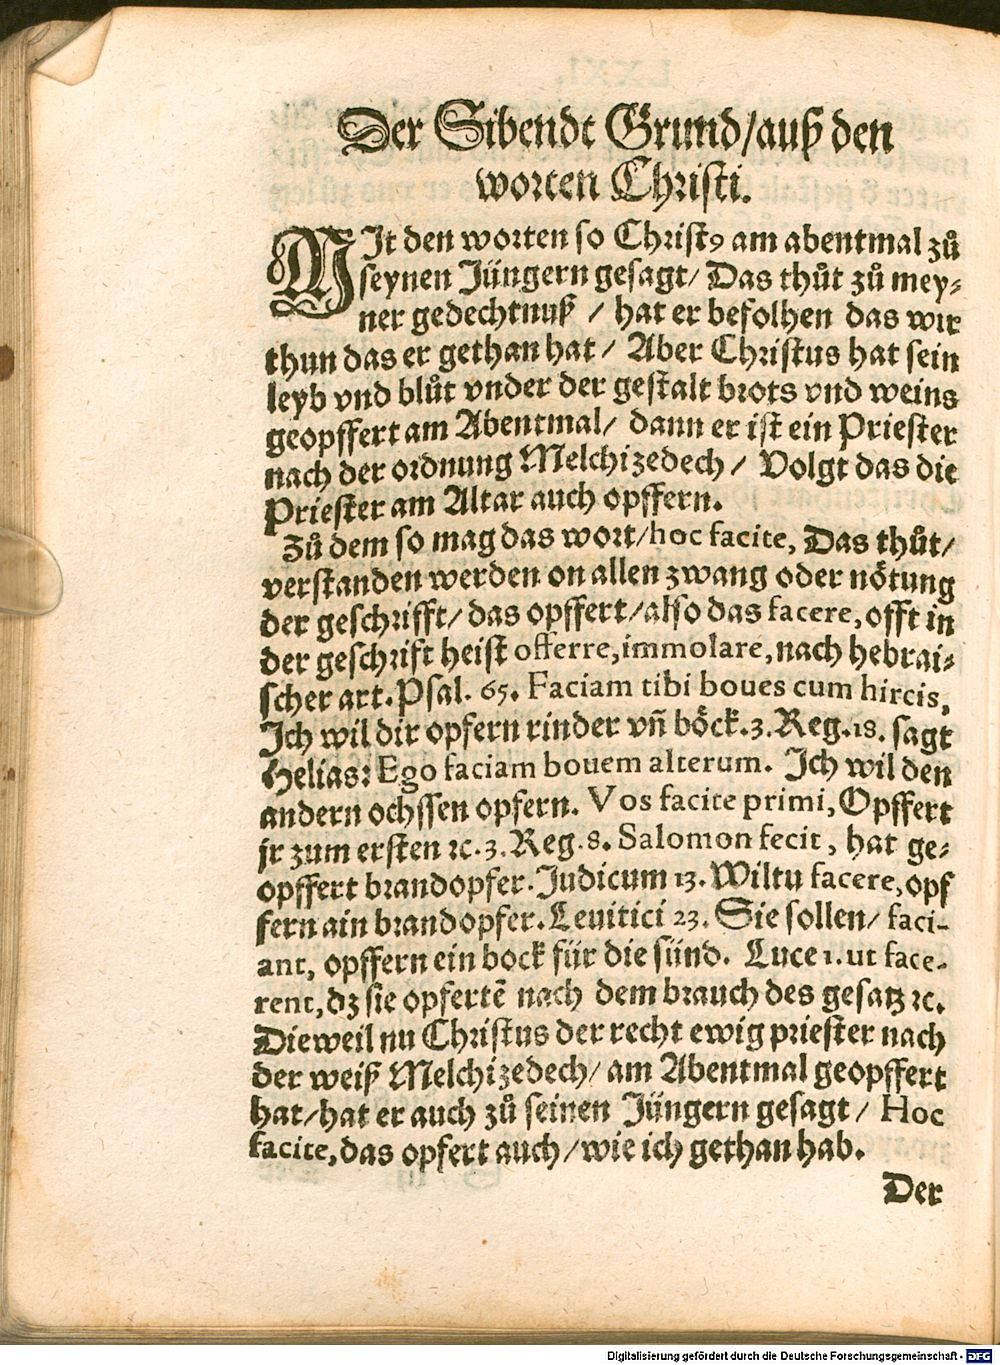 Der Sibendt Grund/auß den
worten Christi.
MIt den worten so Christꝰ am abentmal zů
seynen Jüngern gesagt/ Das thůt zů mey⸗
ner gedechtnuß / hat er befolhen das wir
thun das er gethan hat / Aber Christus hat sein
leyb vnd blůt vnder der gestalt brots vnd weins
geopffert am Abentmal/ dann er ist ein Priester
nach der ordnung Melchizedech / Volgt das die
Priester am Altar auch opffern.
Zů dem so mag das wort/hoc facite, Das thůt/
verstanden werden on allen zwang oder nötung
der geschrifft/ das opffert/also das facere, offt in
der geschrift heist offerre, immolare, nach hebrai⸗
scher art. Psal. 65. Faciam tibi boues cum hircis,
Ich wil dir opfern rinder vñ böck. 3. Reg. 18. sagt
Helias: Ego faciam bouem alterum. Ich wil den
andern ochssen opfern. Vos facite primi, Opffert
jr zum ersten ꝛc. 3. Reg. 8. Salomon fecit, hat ge⸗
opffert brandopfer. Judicum 13. Wiltu facere, opf
fern ain brandopfer. Leuitici 23. Sie sollen/ faci-
ant, opffern ein bock für die sünd. Luce 1. ut face-
rent, dz sie opfertẽ nach dem brauch des gesatz ꝛc.
Dieweil nu Christus der recht ewig priester nach
der weiß Melchizedech/ am Abentmal geopffert
hat/hat er auch zů seinen Jüngern gesagt / Hoc
facite, das opfert auch/wie ich gethan hab.
Der
Digitalisierung gefördert durch die Deutsche Forschungsgemeinschaft - DFG